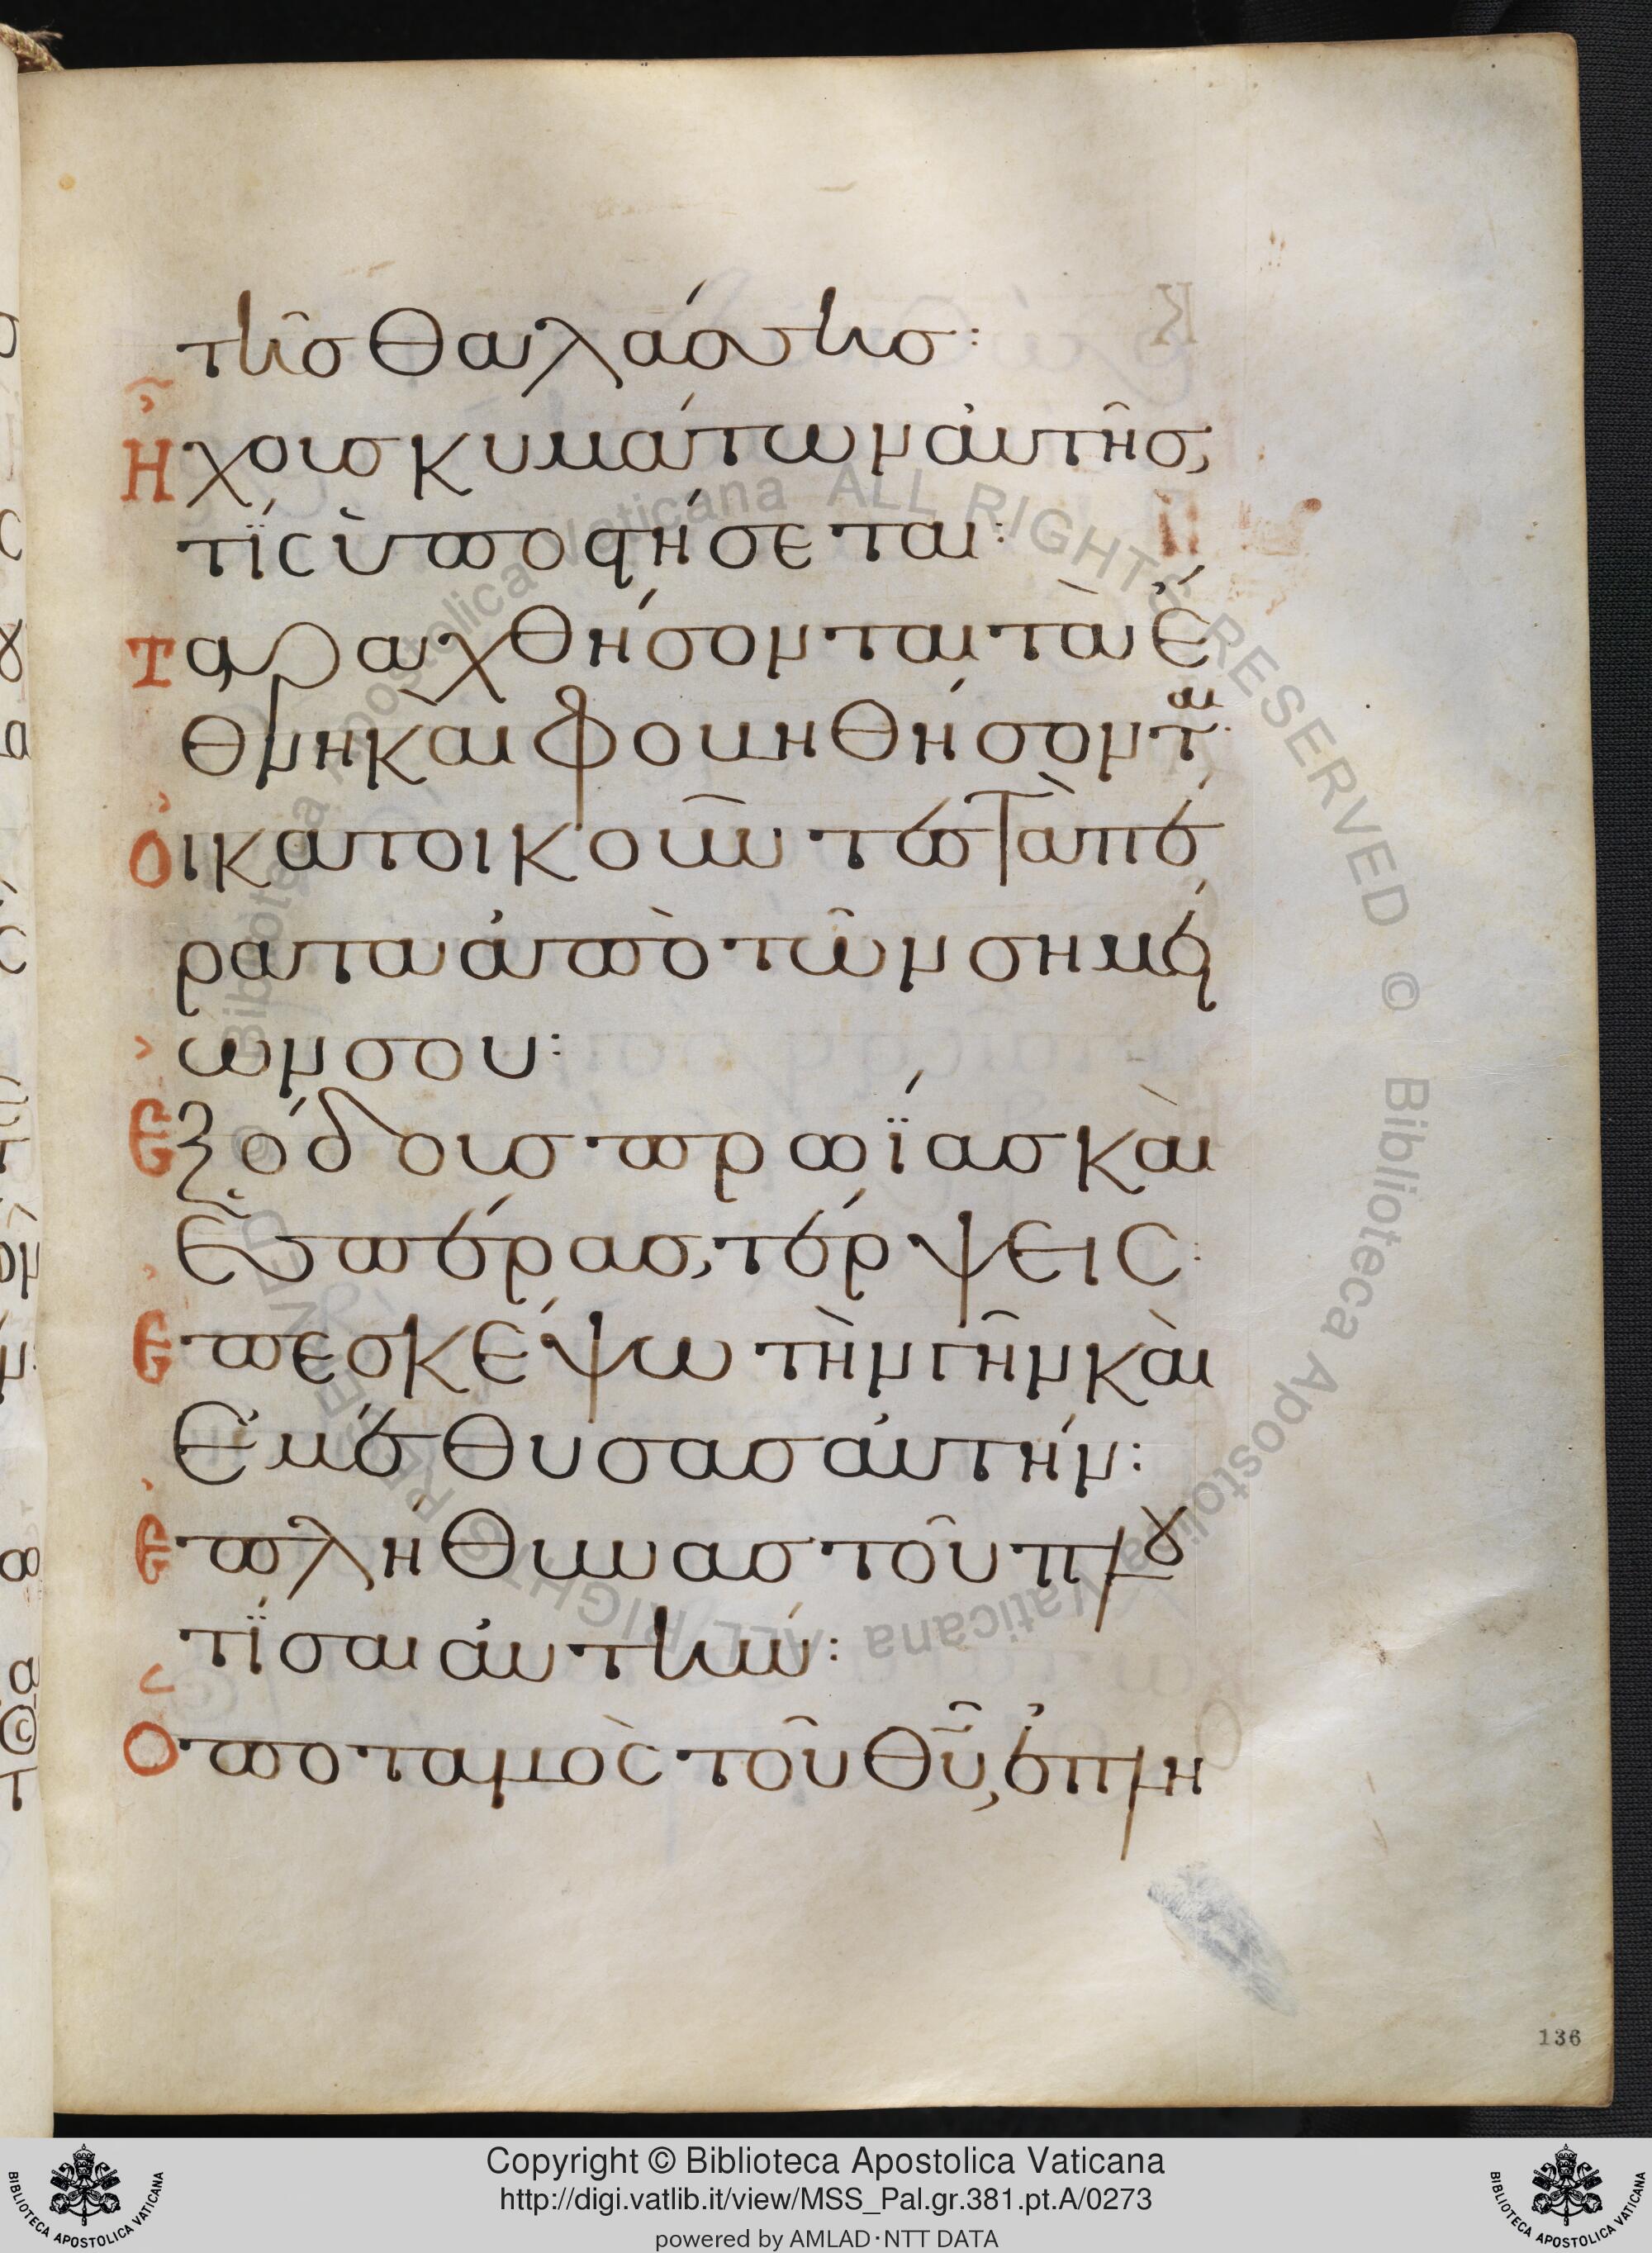 τῆς θαλάσσης:
Ἤχους κυμάτων αὐτῆς,
τίς ὑποστήσεται:
Ταραχθήσονται τὰ ἔ
θνη καὶ φοβηθήσοντ(αι):
Οἱ κατοικοῦντες τὰ πέ
ρατα ἀπὸ τῶν σημεί
ων σου:
Ἐξόδους πρωΐας καὶ
ἑσπέρας, τέρψεις:
Ἐπεσκέψω τὴν γῆν καὶ
ἐμέθυσας αὐτήν:
Ἐπλήθυνας τοῦ πλου
τίσαι αὐτήν:
Ὁ ποταμὸς τοῦ θῦ, ἐπλη
136
Copyright © Biblioteca Apostolica Vaticana
http://digi.vatlib.it/view/MSS_Pal.gr.381.pt.A/0273
powered by AMLAD·NTT DATA
BIBLIOTECA APOSTOLICA VATICANA
BIBLIOTECA APOSTOLICA VATICANA